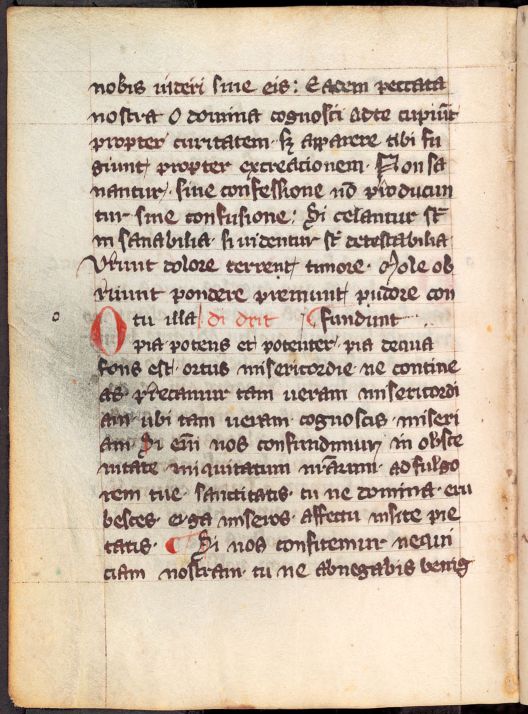 nobis uideri sine eis: Eadem peccata
nostra o domina cognosci a te cupiūt
propter curitatem · sꝫ apparere tibi fu
giunt propter excreacionem · Non sa
nantur sine confessione nō producun
tur sine confusione: Si celantur st̄
in sanabilia · si uidentur st̄ detestabilia
Vrunt dolore terrent timore · mole ob
ruunt pondere premunt pudore con
tu illa di drit fundunt
O pia potens et potenter · pia de cuia
fons est ortus misericordie ne contine
as precamur tam ueram misericordi
am ubi tam ueram cognoscis miseri
am Si em̄ nos confundimur in obsce
nitate iniquitatum nr̄arum · ad fulgo
rem tue sanctitatis · tu ne domina eru
besces erga miseros affectu insite pie
tatis · Si nos confitemur nequi
ciam nostram tu ne abnegabis benig
o